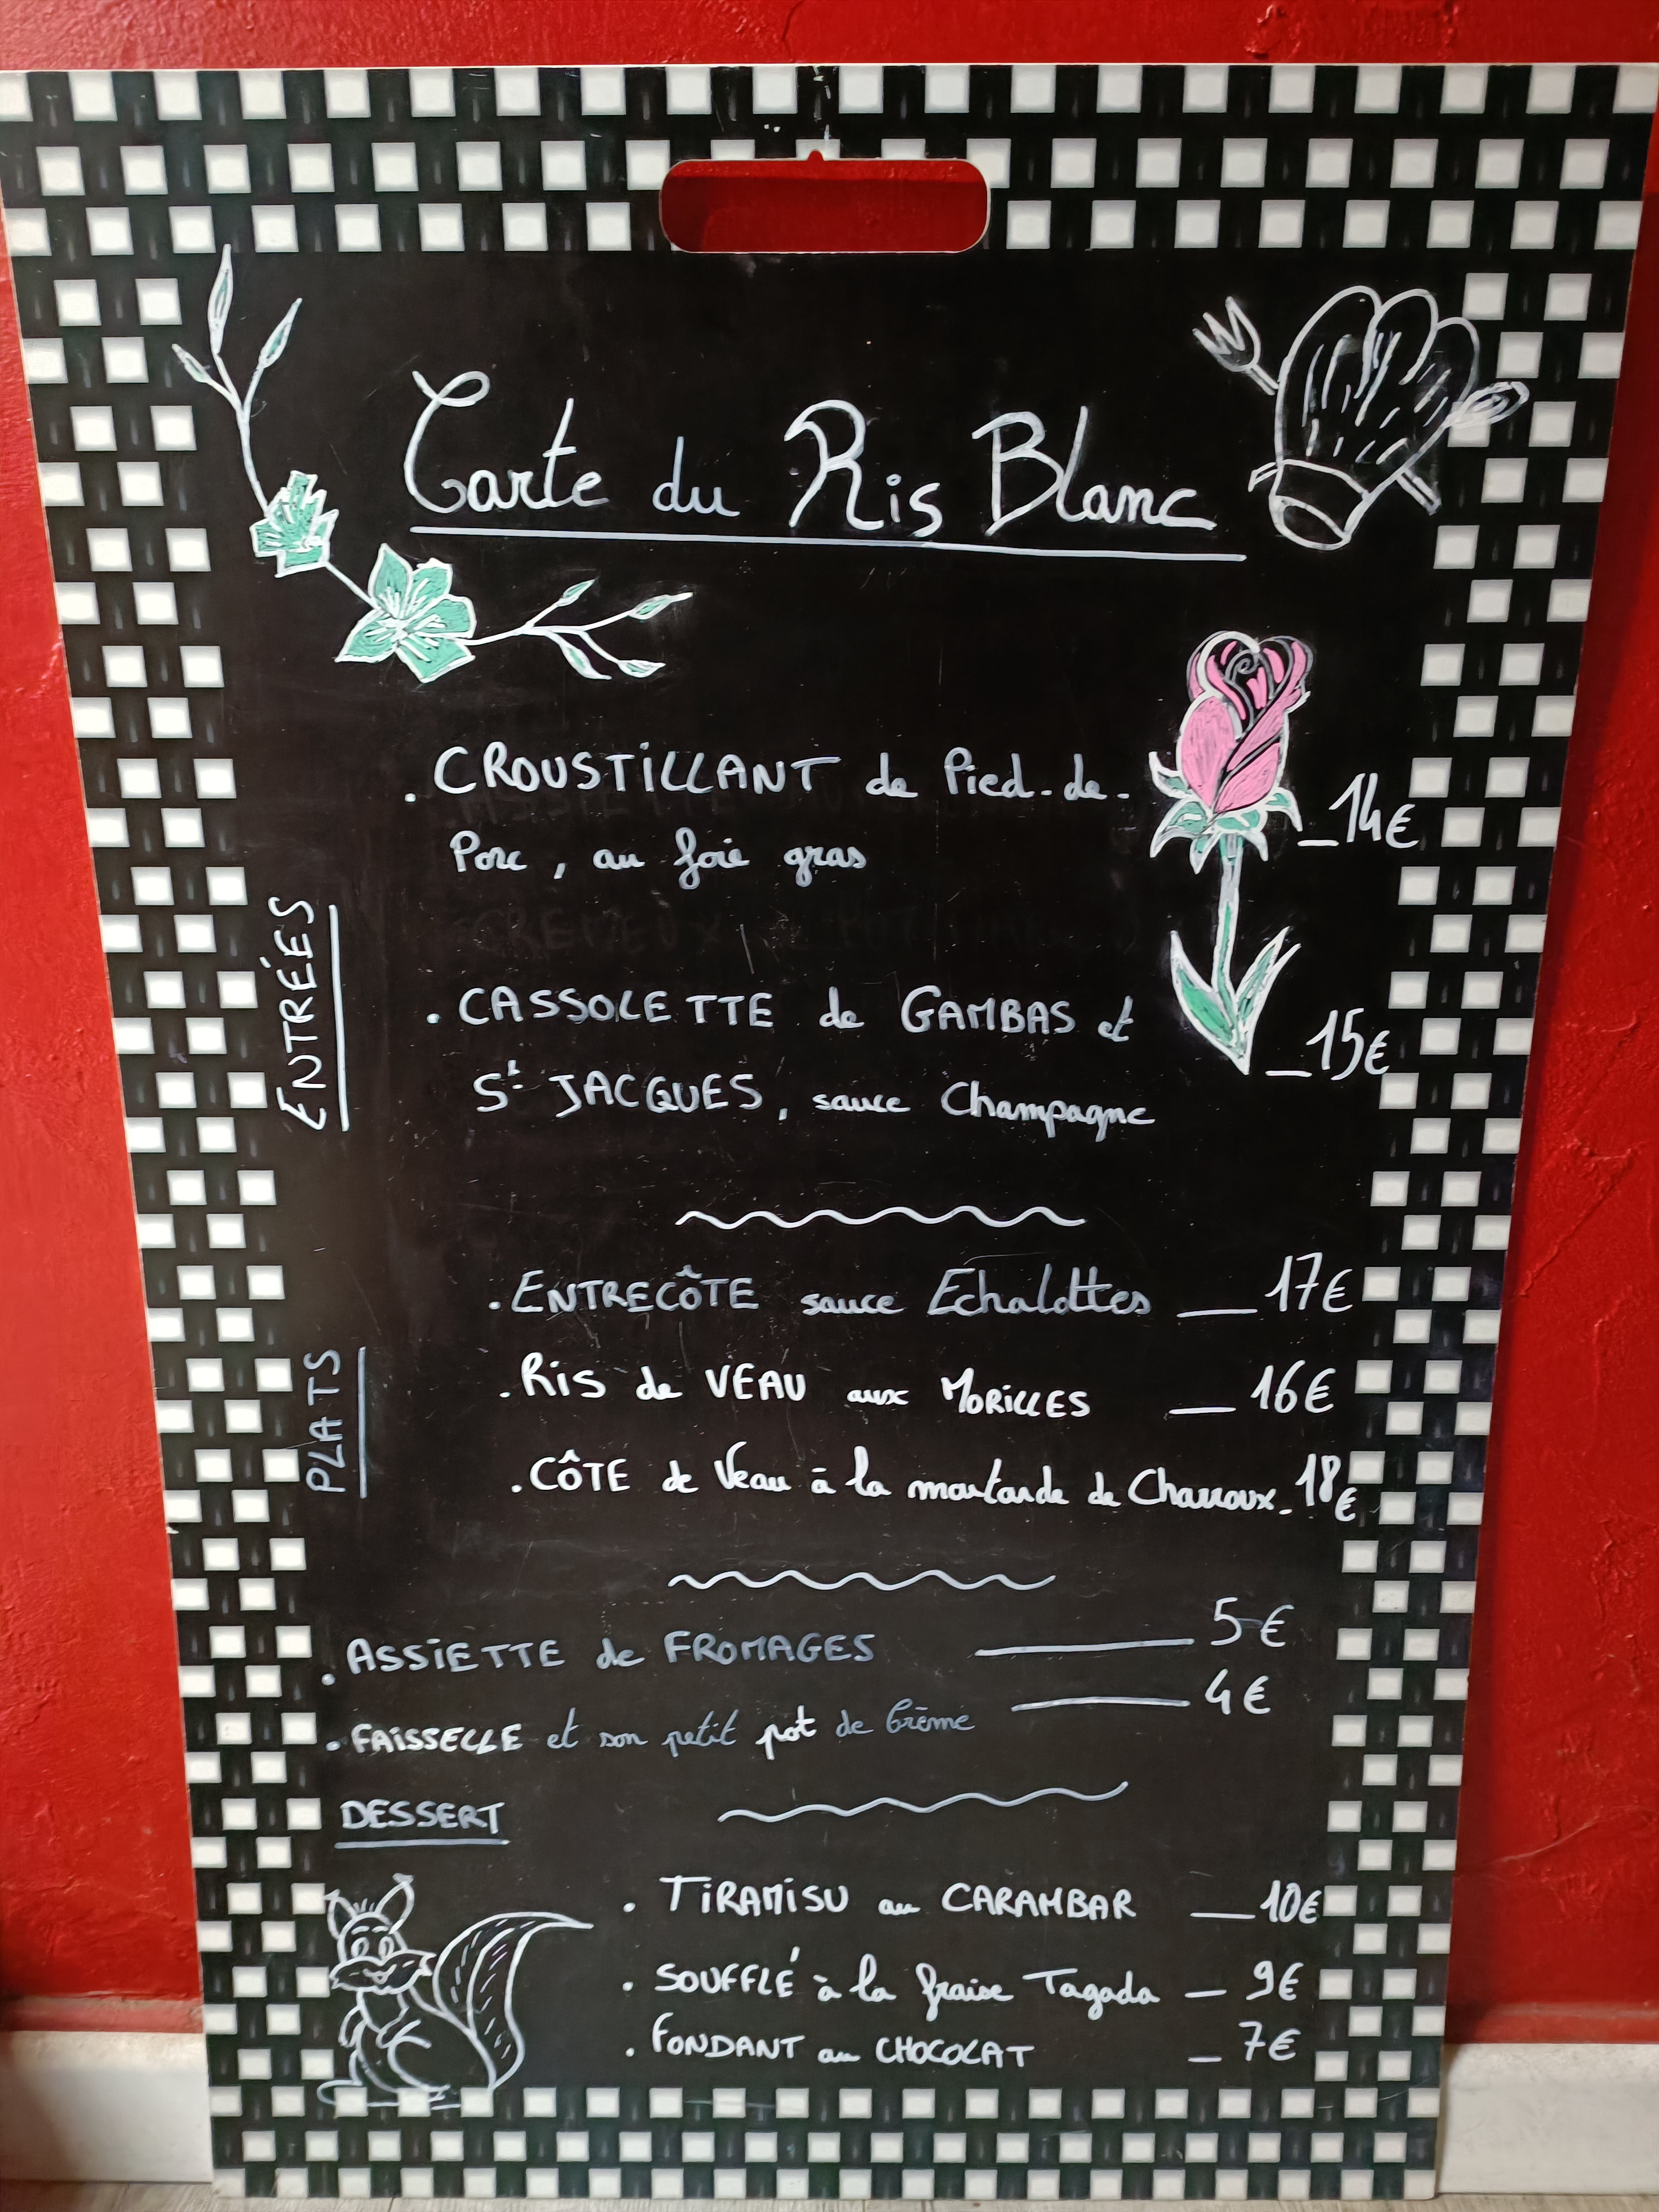 Carte du Ris Blanc
ENTRÉES
. CROUSTiLLANT de Pied-de-
Porc, au foie gras
_14€
. CASSOLETTE de GAMBAS et
St JACQUES, sauce Champagne
_15€
PLATS
. ENTRECÔTE sauce Echalottes __ 17€
. Ris de VEAU aux MORiLLES __ 16€
. CÔTE de Veau à la moutarde de Charroux_ 18€
. ASSiETTE de FROMAGES ____ 5€
. FAiSSELLE et son petit pot de Crème ____ 4€
DESSERT
. TiRAMiSU au CARAMBAR __ 10€
. SOUFFLÉ à la fraise Tagada _ 9€
. FONDANT au CHOCOLAT _ 7€